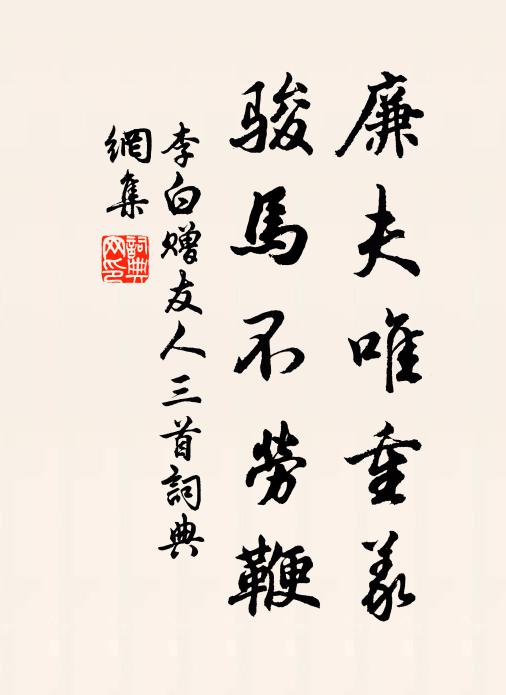 廉夫唯重義
骏馬不勞鞭
李白赠友人三首詞典
網集
詞典
网印